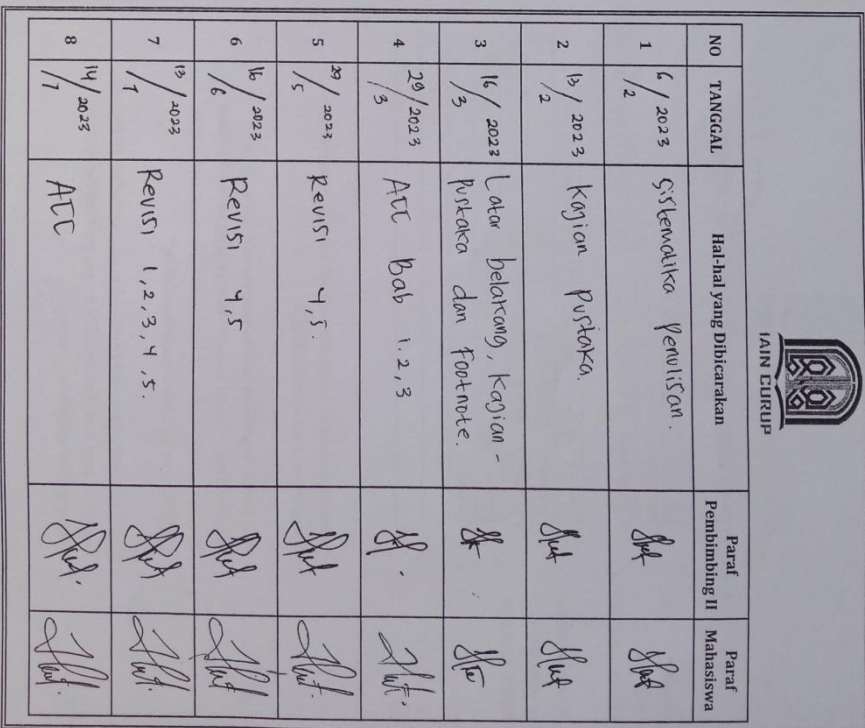 IAIN CURUP
NO TANGGAL Hal-hal yang Dibicarakan Paraf Pembimbing II Paraf Mahasiswa
1 6/2 2023 Sistematika Penulisan.
2 13/2 2023 Kajian Pustaka.
3 16/3 2023 Latar belakang, Kajian -
Pustaka dan Footnote.
4 29/3 2023 ACC Bab 1.2,3
5 29/5 2023 Revisi 4,5.
6 16/6 2023 Revisi 4,5
7 13/7 2023 Revisi 1,2,3,4,5.
8 14/7 2023 ACC